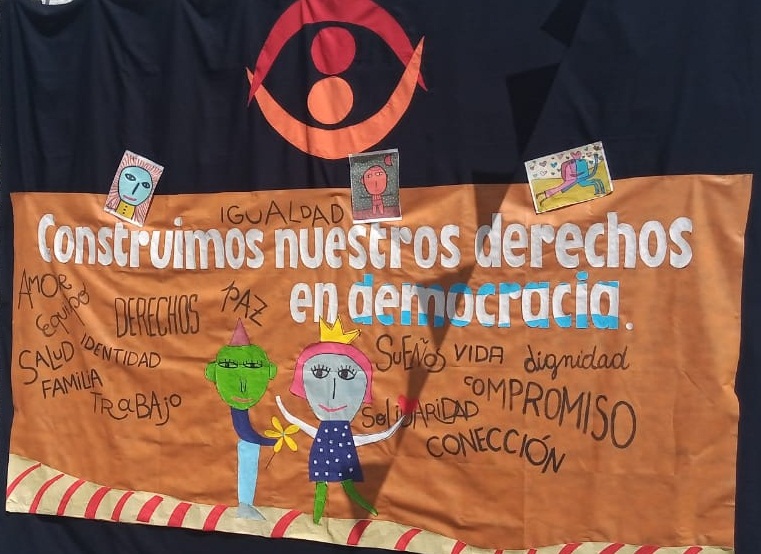 IGUALDAD
Construimos nuestros derechos
en democracia.
AMOR
Equipo
DERECHOS
PAZ
SALUD
IDENTIDAD
FAMILIA
TRaBAJo
SUEÑOS
VIDA
dignidad
COMPROMISO
SoliDARiDAD
CONECCIÓN